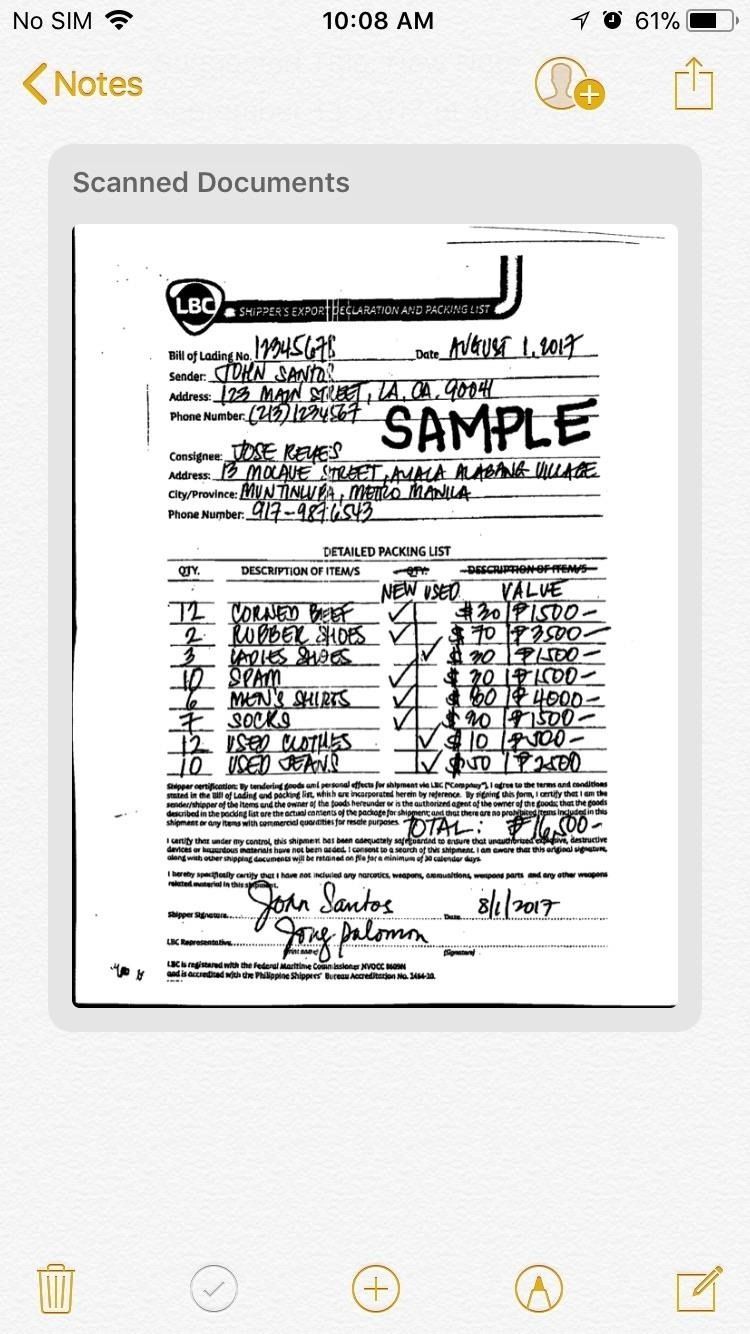 No SIM 10:08 AM 61%
Notes
Scanned Documents
LBC SHIPPER'S EXPORT DECLARATION AND PACKING LIST
Bill of Lading No. 12345678 Date AUGUST 1, 2017
Sender: JOHN SANTOS
Address: 123 MAIN STREET, LA, CA. 90041
Phone Number: (213) 1234567
SAMPLE
Consignee: JOSE REYES
Address: 13 MOLAVE STREET, AYALA ALABANG VILLAGE
City/Province: MUNTINLUPA, METRO MANILA
Phone Number: 917-9876543
DETAILED PACKING LIST
QTY. DESCRIPTION OF ITEM/S QTY. DESCRIPTION OF ITEM/S
NEW USED VALUE
12 CORNED BEEF ✓ $30 ₱1500-
2 RUBBER SHOES ✓ $70 ₱3500-
3 LADIES SHOES ✓ $30 ₱1500-
10 SPAM ✓ $30 ₱1500-
6 MEN'S SHIRTS ✓ $80 ₱4000-
7 SOCKS ✓ $30 ₱1500-
12 USED CLOTHES ✓ $10 ₱500-
10 USED JEANS ✓ $50 ₱2500
Shipper certification: By tendering goods and personal effects for shipment via LBC ("Company"), I agree to the terms and conditions
stated in the Bill of Lading and packing list, which are incorporated herein by reference. By signing this form, I certify that I am the
sender/shipper of the items and the owner of the foods hereunder or is the authorized agent of the owner of the goods; that the goods
described in the packing list are the actual contents of the package for shipment; and that there are no prohibited items included in this
shipment or any items with commercial quantities for resale purposes.
TOTAL: ₱16,500-
I certify that under my control, this shipment has been adequately safeguarded to ensure that unauthorized explosive, destructive
devices or hazardous materials have not been added. I consent to a search of this shipment. I am aware that this original signature,
along with other shipping documents will be retained on file for a minimum of 30 calendar days.
I hereby specifically certify that I have not included any narcotics, weapons, ammunitions, weapons parts and any other weapons
related material in this shipment.
John Santos 8/1/2017
Shipper Signature Date
Jong Palomon
LBC Representative (Signature)
LBC is registered with the Federal Maritime Commissioner NVOCC
and is accredited with the Philippine Shippers' Bureau Accreditation No.